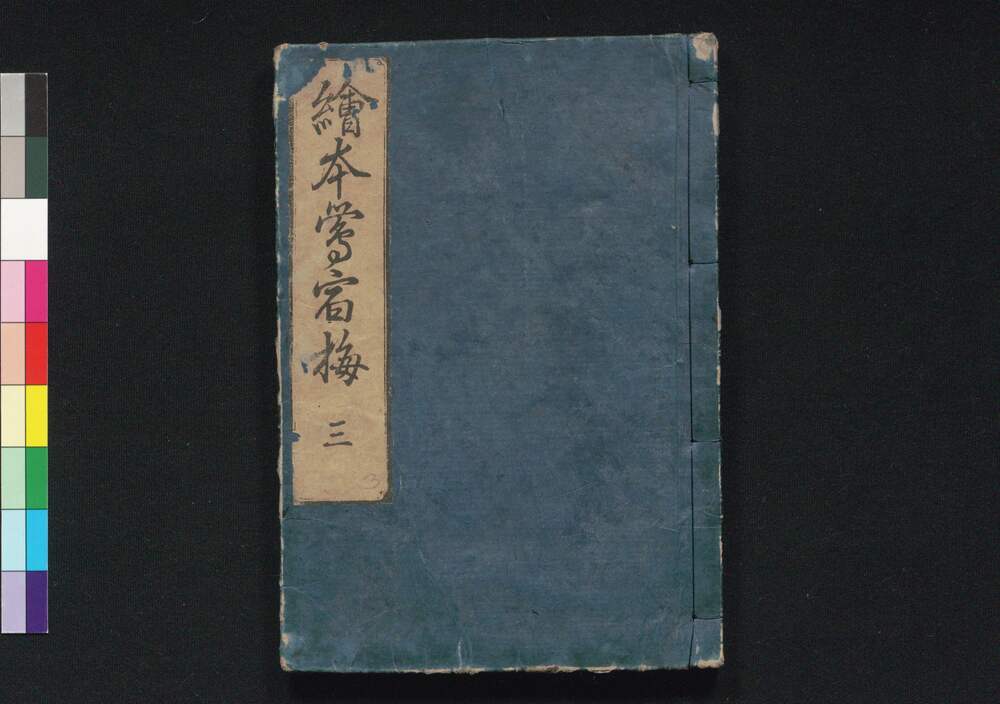 繪本鶯宿梅 三
3